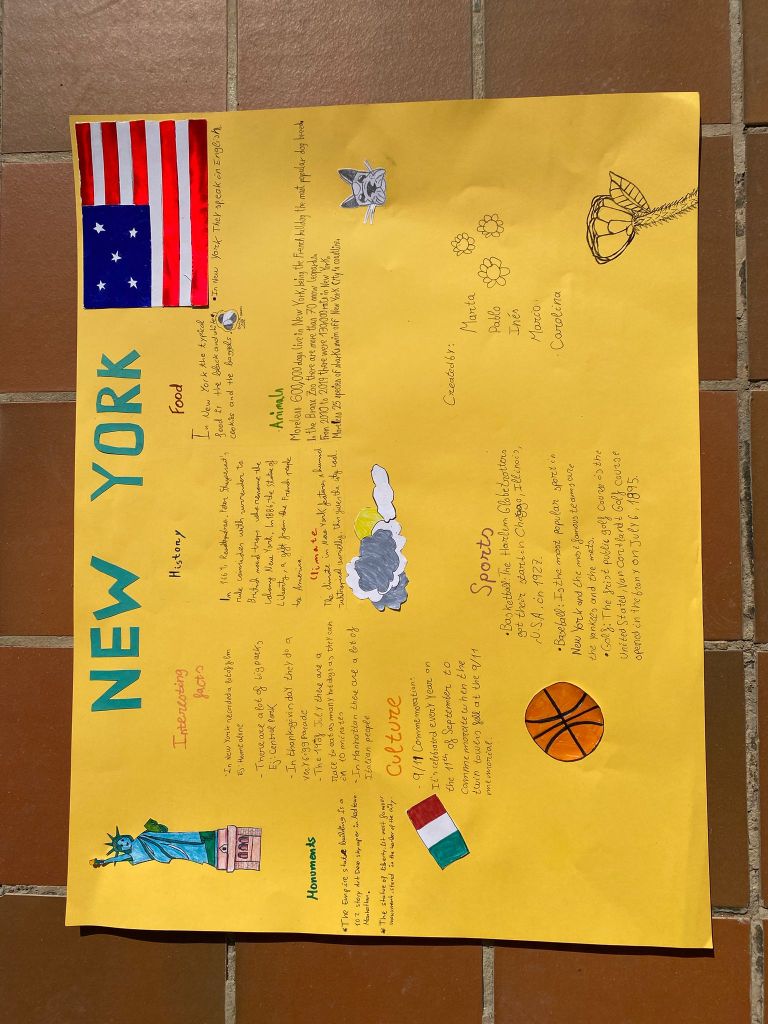 NEW YORK
Interesting
facts
- In New York recorded a lot of film
Ej Home alone
- There are a lot of big parks
Ej: Central Park
- In thanksgivin day they do a
very bigg parade
- The 19of July there are a
Race to eat as many hotdogs as they can
in 10 minutes
- In Manhattan there are a lot of
Italian people
History
In 1667, Peter
rule coincides with surrender to
British naval troops who rename the
colony New York. In 1886, the Statue of
Liberty, a gift from the French people
to America
Climate
The climate in New York features a humid
subtropical this gives the city cool
Food
In New York the typical
food is the black and white
cookies and the baggels
• In New York They speak in English
Animals
Moreless 600,000 dogs live in New York, being the French bulldog the most popular dog breed
In the Bronx Zoo there are more than 70 snow leopards
From 2010 to 2019 there were 130000 rats in New York
Moreless 25 species of sharks swim off New York City's coastline
Monuments
* The Empire state building is a
102 story Art Deco skyscraper in
Manhattan.
* The statue of liberty is most famous
monument, stand in the of the city.
Culture
- 9/11 Commemoration:
It's celebrated every year on
the 11th of September to
commemorate when the
twin towers fell at the 9/11
memorial.
Sports
• Basketball: The Harlem Globetrotters
got their start in Chicago, Illinois,
U.S.A. in 1927.
• Baseball: Is the most popular sport in
New York and the most famous teams are
the yankees and the mets.
• Golf: The first public golf course is the
United States, Van Cortlandt Golf course
opened in the bronx on July 6, 1895.
Created by:
Marta
Pablo
Inés
Marco
Carolina